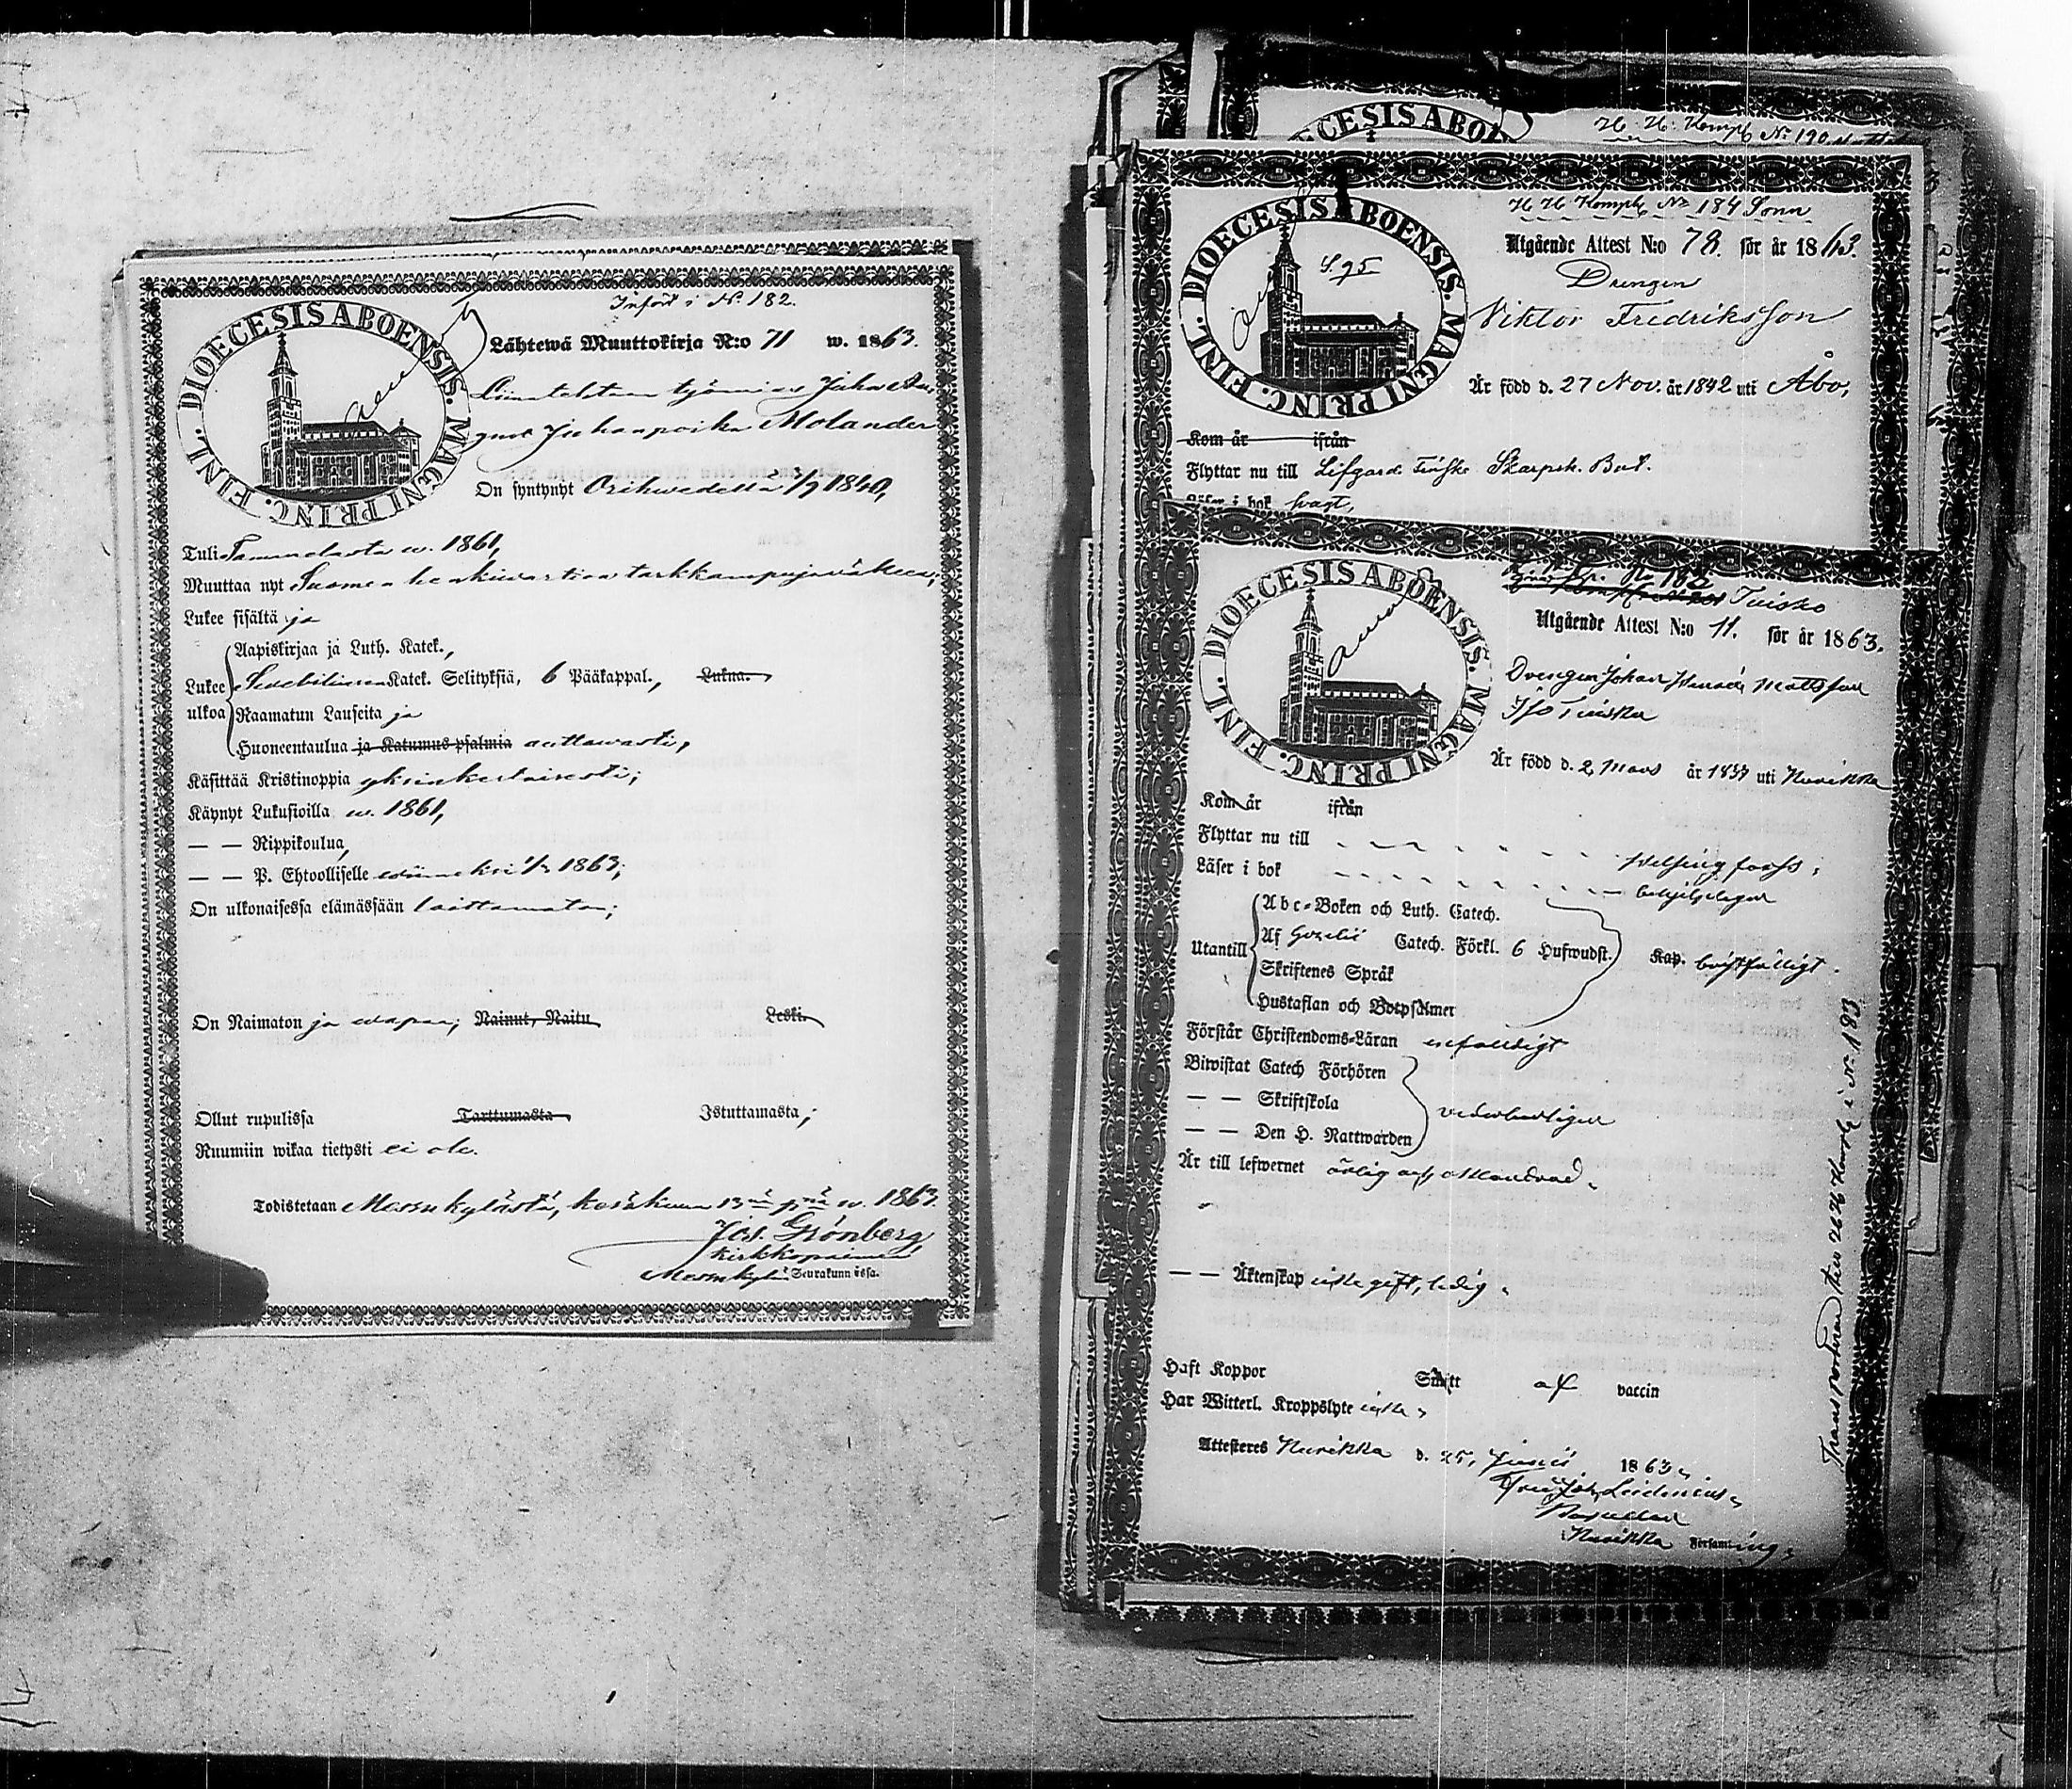 Infört i No 182.
DIOECESIS ABOENSIS. MAGNI PRINC. FINL.
Lähtewä Muuttokirja N:o 71 w. 1863.
Juhapoika Molander
On syntynyt Orihwedellä 1840,
Tuli w. 1861,
Muuttaa nyt Suomen henkiwartia tarkkampujawäkeen;
Lukee sisältä ja
Aapiskirjaa ja Luth. Katek.,
Lukee Swebiliuxen Katek. Selityksiä, 6 Pääkappal., Lukua.
ulkoa Raamatun Lauseita ja
Huoneentaulua ja Katumus-psalmia auttawasti,
Käsittää Kristinoppia yksinkertaisesti;
Käynyt Lukusioilla w. 1861,
— — Rippikoulua,
— — P. Ehtoolliselle wiimeksi 1863;
On ulkonaisessa elämässään laittamaton;
On Naimaton ja wapaa; Nainut, Naitu Leski.
Ollut rupulissa Tarttumasta Istuttamasta;
Ruumiin wikaa tietysti ei ole.
Todistetaan Messukylästä, kesäkuun 13 p w. 1863.
Jos. Grönberg
kirkkopaimen
Messukylä Seurakunnassa.
DIOECESIS ABOENSIS
H. H. Komp. No 190
H H Komp No 184 Sonn
DIOECESIS ABOENSIS. MAGNI PRINC. FINL.
S. 95
Utgående Attest N:o 78. för år 1863.
Drengen
Viktor Fredriksson
Är född d. 27 Nov. år 1842 uti Åbo,
Kom år ifrån
Flyttar nu till Lifgard. Finska Skarpsk. Bat.
Läser i bok
No 182
Tuisko
DIOECESIS ABOENSIS. MAGNI PRINC. FINL.
Utgående Attest N:o 11. för år 1863.
Drengen Johan Henrik Mattsson
Iso Tuisku
Är född d. 2 Mars år 1837 uti Kurikka
Kom år ifrån
Flyttar nu till Helsingfors;
Läser i bok behjelpligen
Abc-Boken och Luth. Catech.
Utantill Af Gezelii Catech. Förkl. 6 Hufwudst. Kap. bristfälligt.
Skriftenes Språk
Hustaflan och Botpsalmer
Förstår Christendoms-Läran enfaldigt
Biwistat Catech Förhören
— — Skriftskola vederbörligen
— — Den H. Nattwarden
Är till lefwernet ärlig och oklandrad.
— — Äktenskap icke gift, ledig.
Haft Koppor Smitt af vaccin
Har Witterl. Kroppslyte icke,
Attesteres Kurikka d. 25, Junii 1863,
Kurikka Församling.